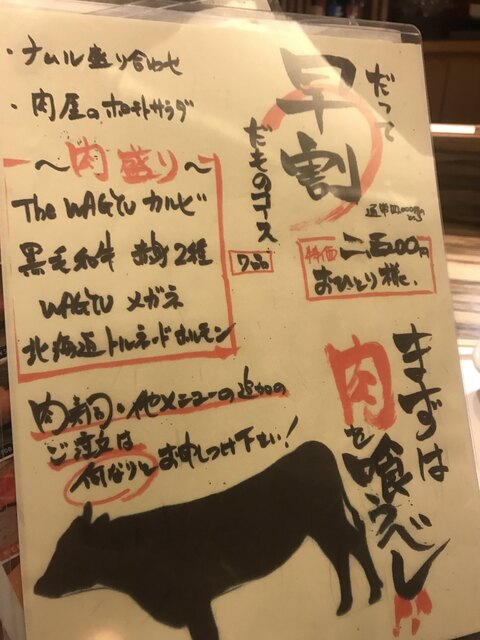 だって
早割
だもののコース
7品
特価 二五00円
おひとり様に、
まずは
肉を喰うべし!!
・ナムル盛り合わせ
・肉屋のポテトサラダ
〜肉盛り〜
The WAGYU カルビ
黒毛和牛 赤身2種
WAGYU メガネ
北海道トルネードホルモン
肉寿司・他メニューの追加の
ご注文は
何なりとお申しつけ下さい!